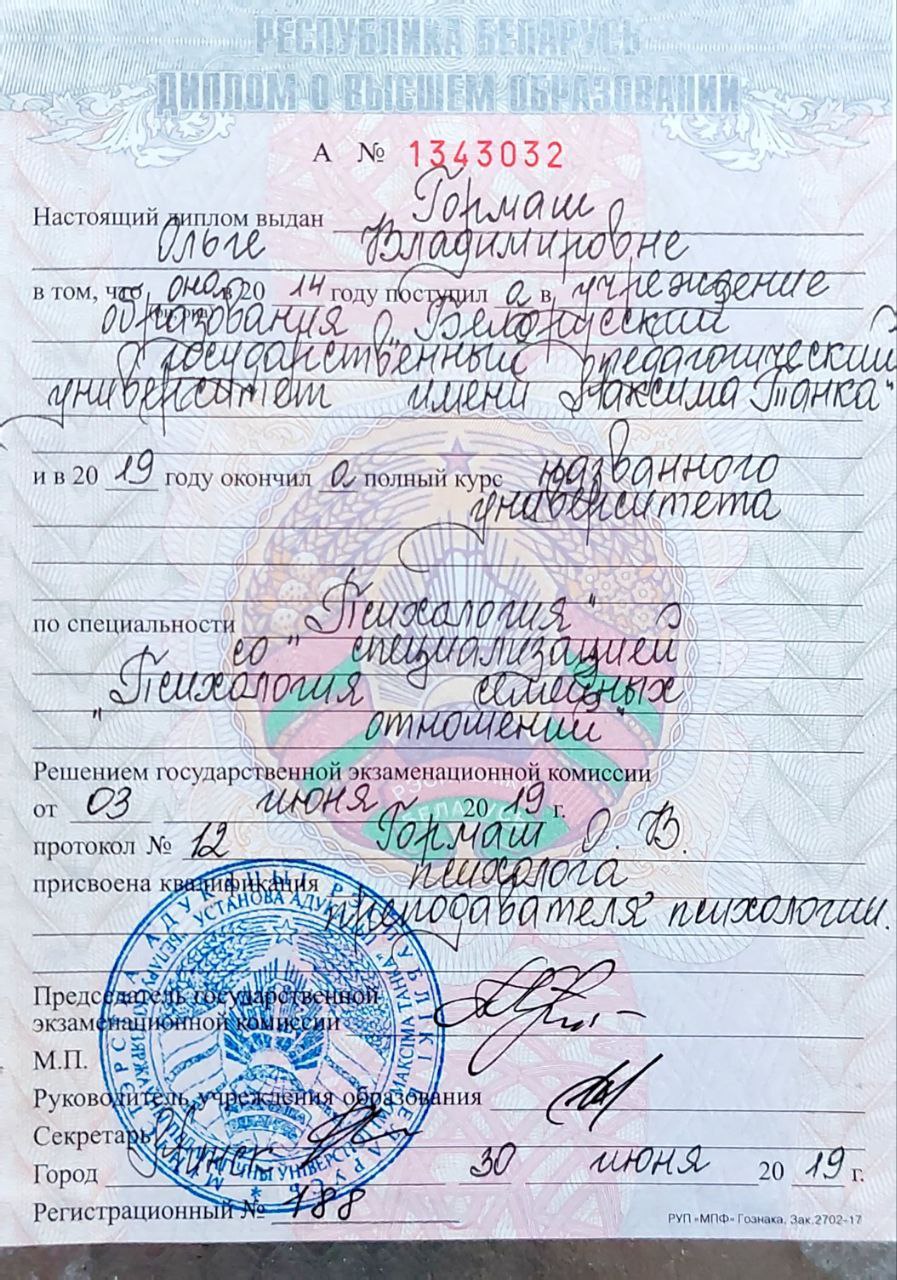 РЕСПУБЛИКА БЕЛАРУСЬ
ДИПЛОМ О ВЫСШЕМ ОБРАЗОВАНИИ
А № 1343032
Настоящий диплом выдан Гормаш
Ольге Владимировне
в том, что она в 20 14 году поступил а в учреждение
образования "Белорусский
государственный педагогический
университет имени Максима Танка"
и в 20 19 году окончил а полный курс названного
университета
по специальности "Психалогия"
со специализацией
"Психалогия семейных
отношений"
Решением государственной экзаменационной комиссии
от 03 июня 20 19 г.
протокол № 12 Гормаш О. В.
присвоена квалификация психолога
преподавателя психологии.
Председатель государственной
экзаменационной комиссии
М.П.
Руководитель учреждения образования
Секретарь
Город Минск 30 июня 20 19 г.
Регистрационный № 788
РУП «МПФ» Гознака. Зак.2702-17
РЭСПУБЛІКА
БЕЛАРУСЬ